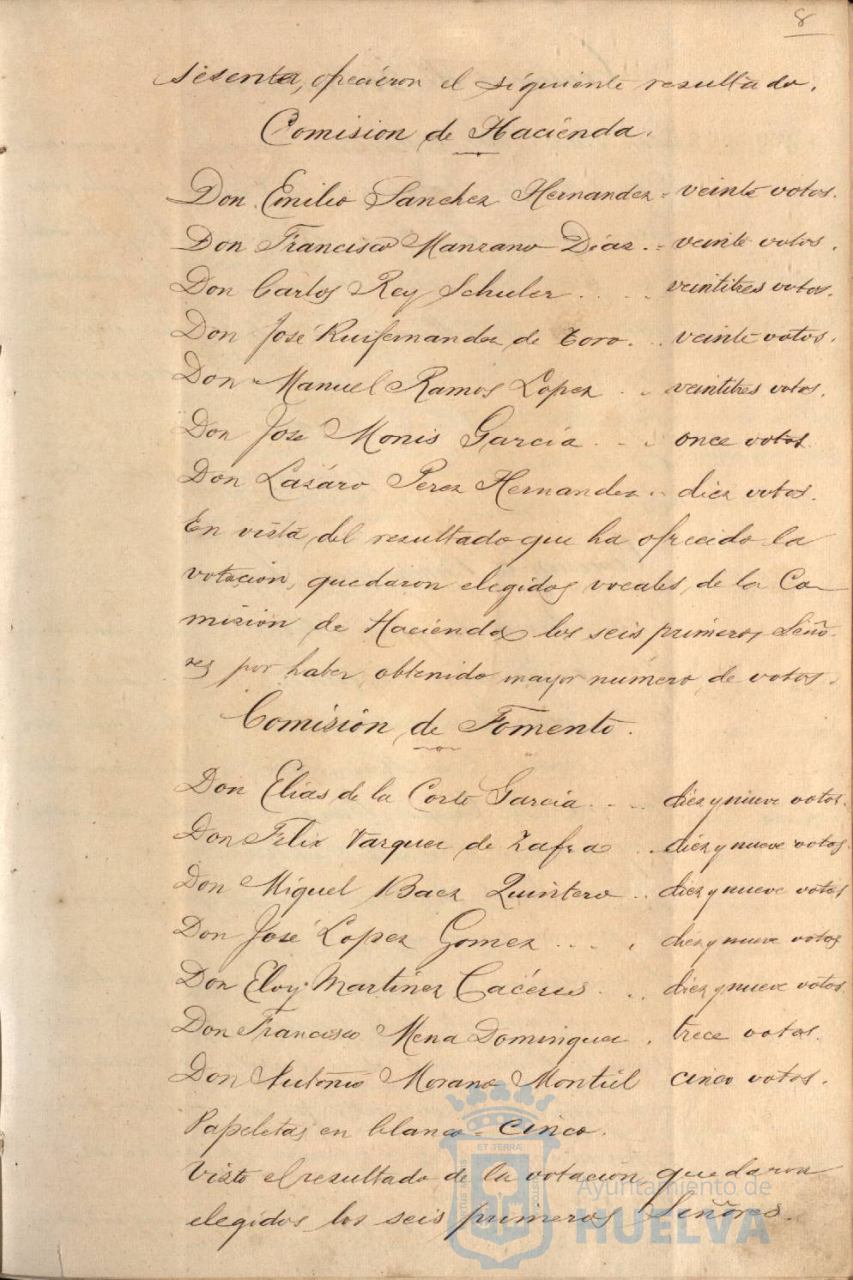 8
sesenta, ofrecieron el siguiente resultado.
Comision de Hacienda.
Don Emilio Sanchez Hernandez = veinte votos.
Don Francisco Manzano Diaz. = veinte votos.
Don Carlos Rey Schuler . . . . veintitres votos.
Don José Ruifernandez de Toro. . . veinte votos.
Don Manuel Ramos Lopez . . . veintitres votos.
Don José Monis García . . . once votos
Don Lázaro Perez Hernandez . . diez votos.
En vista del resultado que ha ofrecido la
votación, quedaron elegidos vocales de la Co-
misión de Hacienda los seis primeros Seño-
res por haber obtenido mayor número de votos.
Comisión de Fomento.
Don Elías de la Corte García . . . . diez y nueve votos.
Don Felix Vazquez de Zafra . . diez y nueve votos
Don Miguel Baez Quintero . . diez y nueve votos
Don José Lopez Gomez . . . . diez y nueve votos
Don Eloy Martinez Cáceres . . . diez y nueve votos
Don Francisco Mena Dominguez . trece votos.
Don Antonio Morano Montiel cinco votos.
Papeletas en blanco = cinco.
Visto el resultado de la votación quedaron
elegidos los seis primeros Señores.
ET TERRÆ
Ayuntamiento de
HUELVA